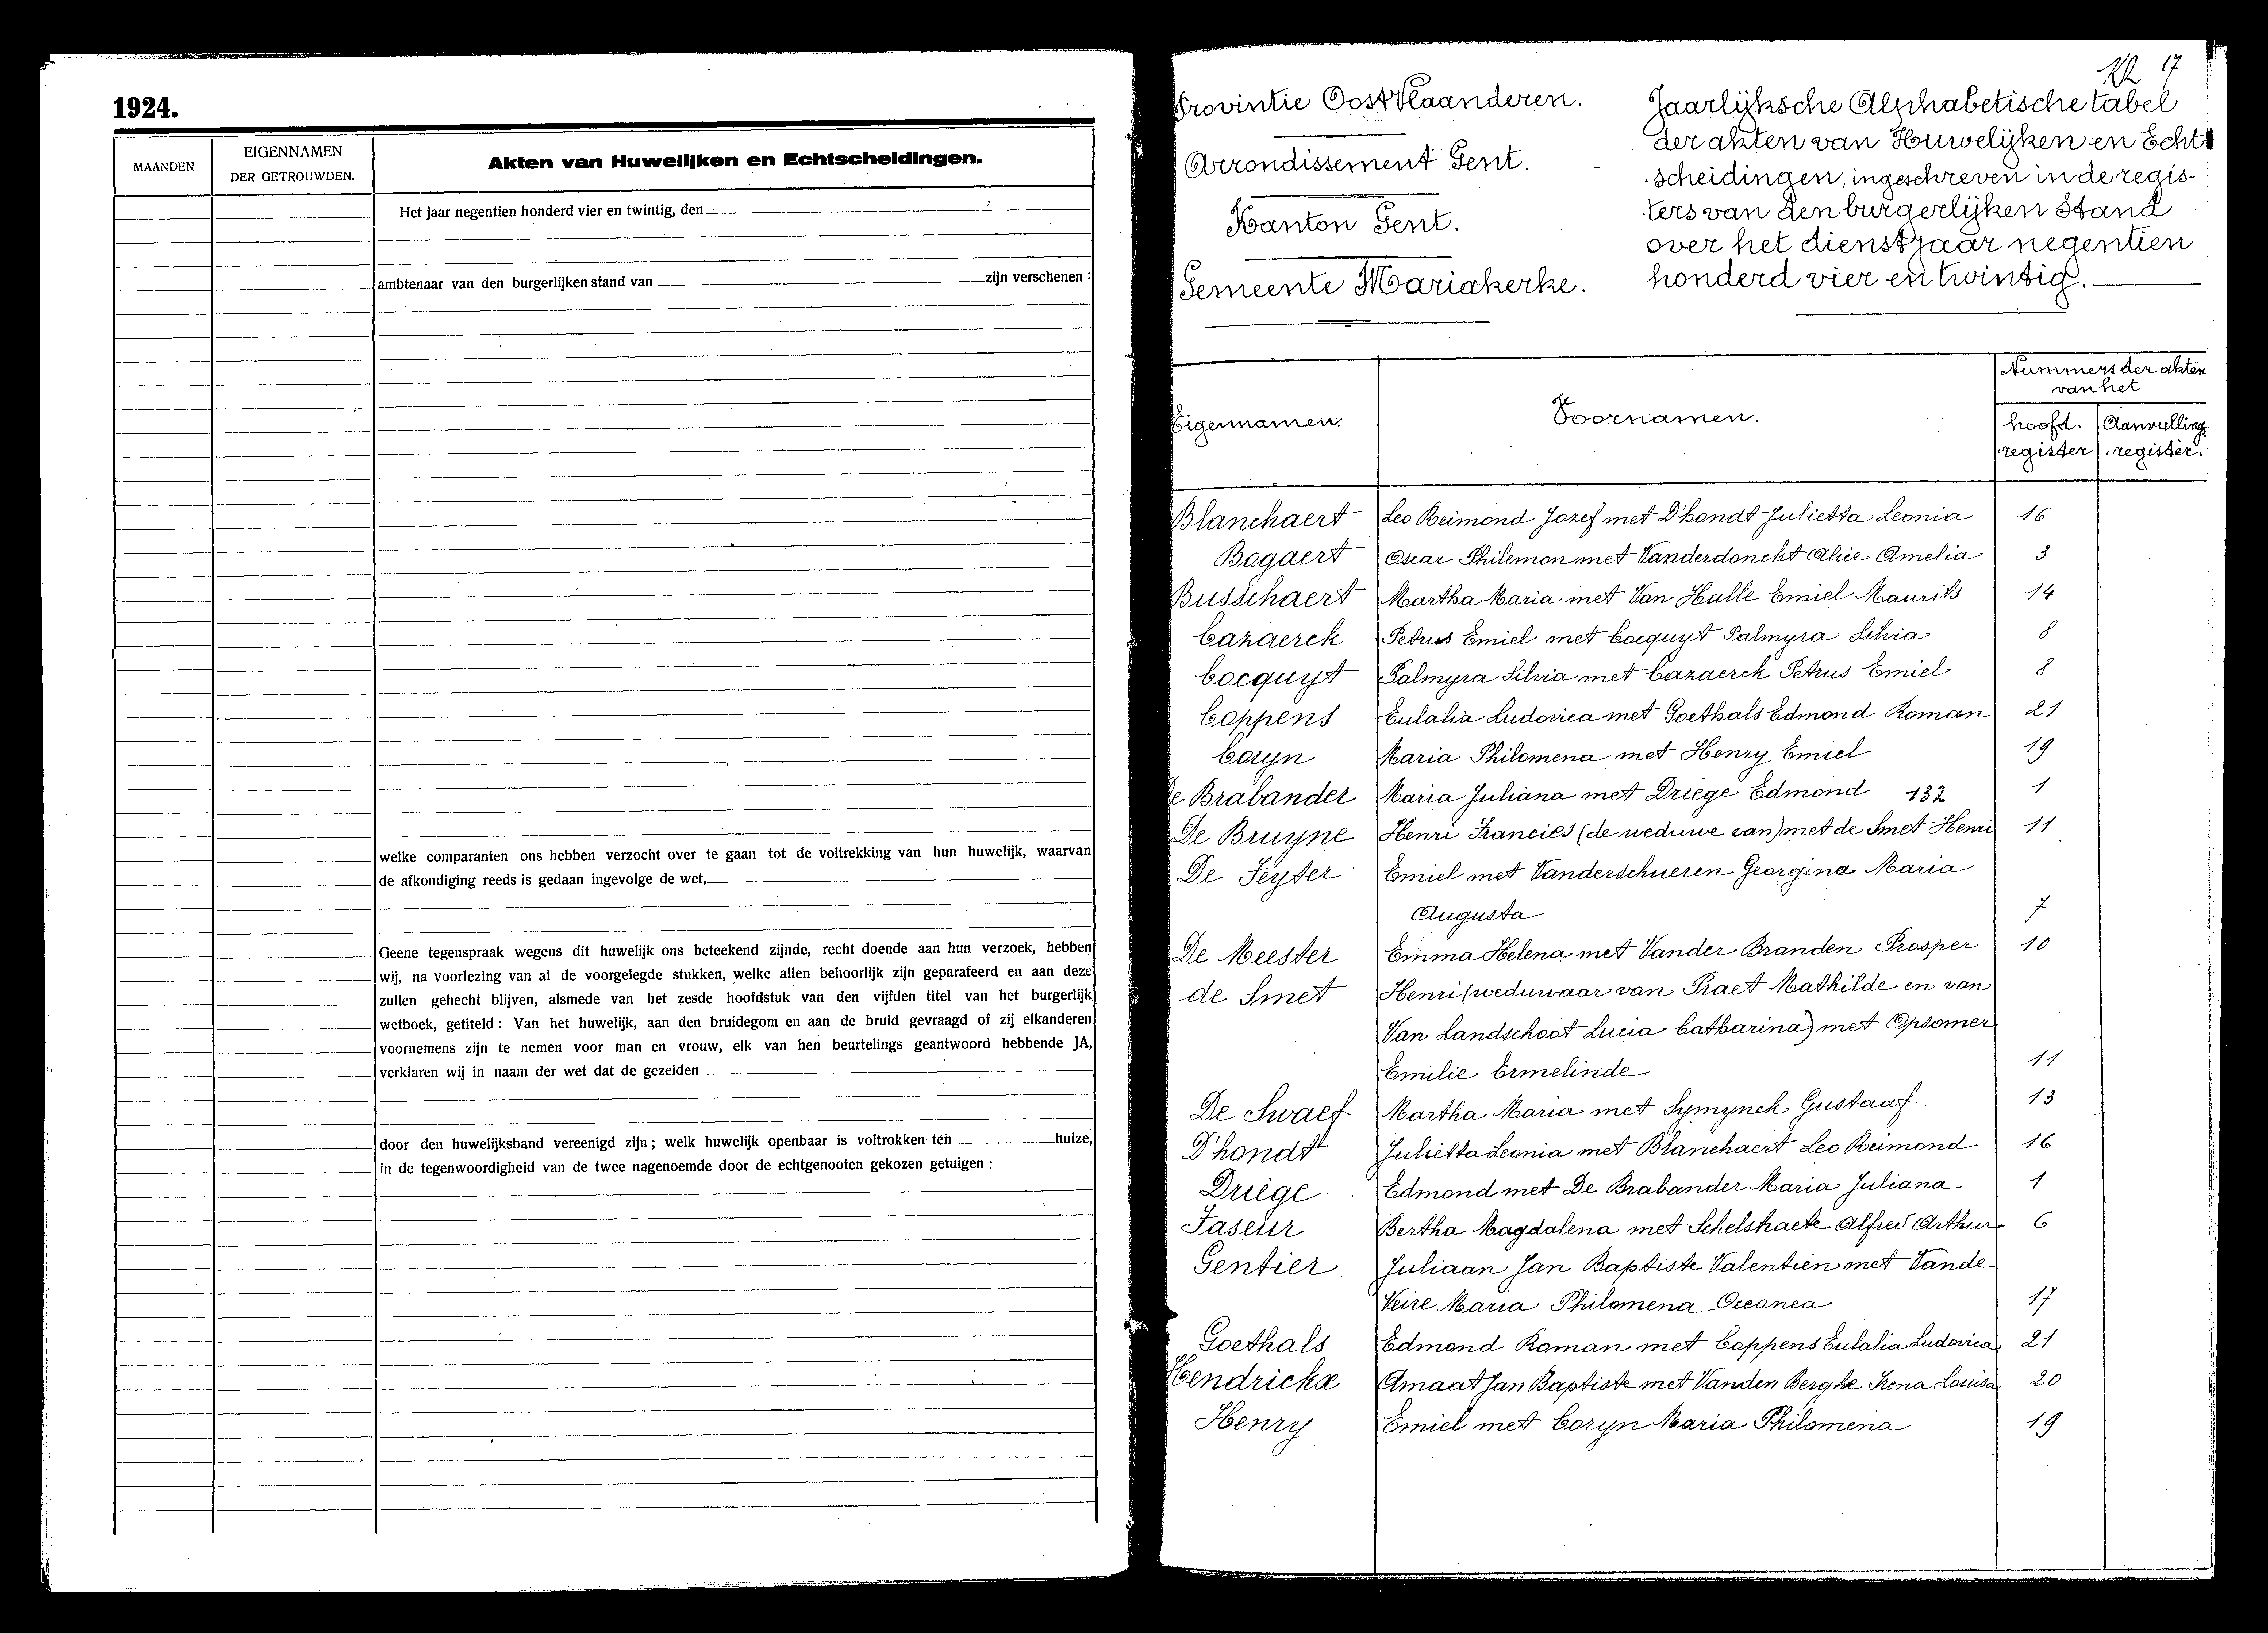 1924.
MAANDEN
EIGENNAMEN
DER GETROUWDEN.
Akten van Huwelijken en Echtscheidingen.
Het jaar negentien honderd vier en twintig, den
ambtenaar van den burgerlijken stand van zijn verschenen :
welke comparanten ons hebben verzocht over te gaan tot de voltrekking van hun huwelijk, waarvan
de afkondiging reeds is gedaan ingevolge de wet,
Geene tegenspraak wegens dit huwelijk ons beteekend zijnde, recht doende aan hun verzoek, hebben
wij, na voorlezing van al de voorgelegde stukken, welke allen behoorlijk zijn geparafeerd en aan deze
zullen gehecht blijven, alsmede van het zesde hoofdstuk van den vijfden titel van het burgerlijk
wetboek, getiteld : Van het huwelijk, aan den bruidegom en aan de bruid gevraagd of zij elkanderen
voornemens zijn te nemen voor man en vrouw, elk van hen beurtelings geantwoord hebbende JA,
verklaren wij in naam der wet dat de gezeiden
door den huwelijksband vereenigd zijn ; welk huwelijk openbaar is voltrokken ten huize,
in de tegenwoordigheid van de twee nagenoemde door de echtgenooten gekozen getuigen :
17
Provintie OostVlaanderen.
Arrondissement Gent.
Kanton Gent.
Gemeente Mariakerke.
Jaarlijksche Alphabetische tabel
der akten van Huwelijken en Echt
scheidingen, ingeschreven in de regis-
ters van den burgerlijken Stand
over het dienstjaar negentien
honderd vier en twintig.
Eigennamen.
Voornamen.
Nummers der akten
van het
hoofd. register
Aanvullings register.
Blanchaert Leo Reimond Jozef met D'hondt Julietta Leonia 16
Bogaert Oscar Philemon met Vanderdonckt Alice Amelia 3
Busschaert Martha Maria met Van Hulle Emiel Maurits 14
Cazaerck Petrus Emiel met Cocquyt Palmyra Silvia 8
Cocquyt Palmyra Silvia met Cazaerck Petrus Emiel 8
Coppens Eulalia Ludovica met Goethals Edmond Roman 21
Coryn Maria Philomena met Henry Emiel 19
De Brabander Maria Juliana met Driege Edmond 132 1
De Bruyne Henri Francies (de weduwe van) met de Smet Henri 11
De Feyter Emiel met Vanderschueren Georgina Maria
Augusta 7
De Meester Emma Helena met Vander Branden Prosper 10
de Smet Henri (weduwaar van Praet Mathilde en van
Van Landschoot Lucia Catharina) met Opsomer
Emilie Ermelinde 11
De Swaef Martha Maria met Symynck Gustaaf 13
D'hondt Julietta Leonia met Blanchaert Leo Reimond 16
Driege Edmond met De Brabander Maria Juliana 1
Faseur Bertha Magdalena met Schelstraete Alfred Arthur 6
Gentier Juliaan Jan Baptiste Valentien met Vande
Veire Maria Philomena Oceanea 17
Goethals Edmond Roman met Coppens Eulalia Ludovica 21
Hendrickx Amaat Jan Baptiste met Vanden Berghe Irena Louisa 20
Henry Emiel met Coryn Maria Philomena 19